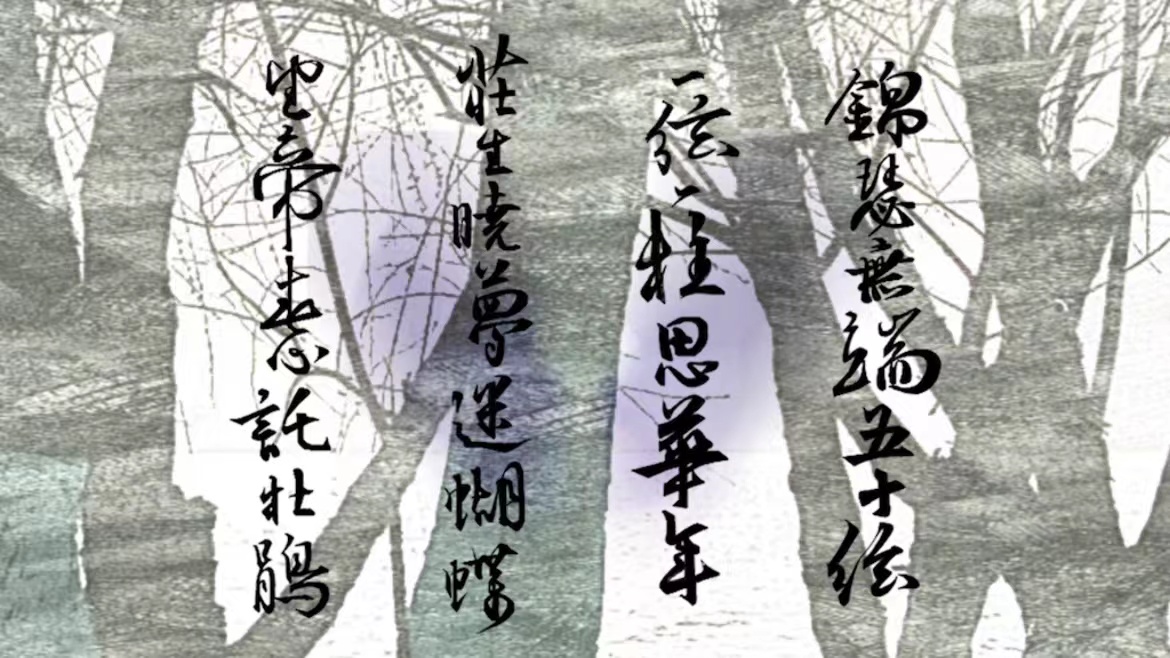 錦瑟無端五十絃
一絃一柱思華年
莊生曉夢迷蝴蝶
望帝春心託杜鵑